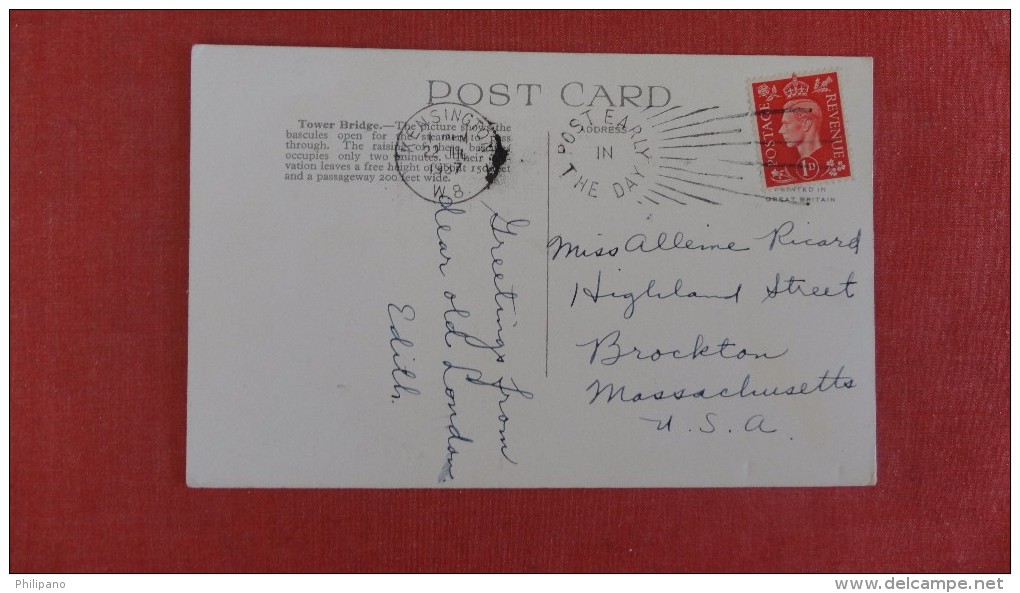 POST CARD
Tower Bridge.—The picture shows the
bascules open for the steamer to pass
through. The raising of these bascules
occupies only two minutes. Their
vation leaves a free height of about 150 feet
and a passageway 200 feet wide.
KENSINGTON
22 JUL
1937
W.8
POST EARLY
IN
THE DAY
ADDRESS
POSTAGE
REVENUE
1D
PRINTED IN
GREAT BRITAIN
Greetings from
dear old London.
Edith.
Miss Alleine Ricard
Highland Street
Brockton
Massachusetts
U.S.A.
Philipano
www.delcampe.net